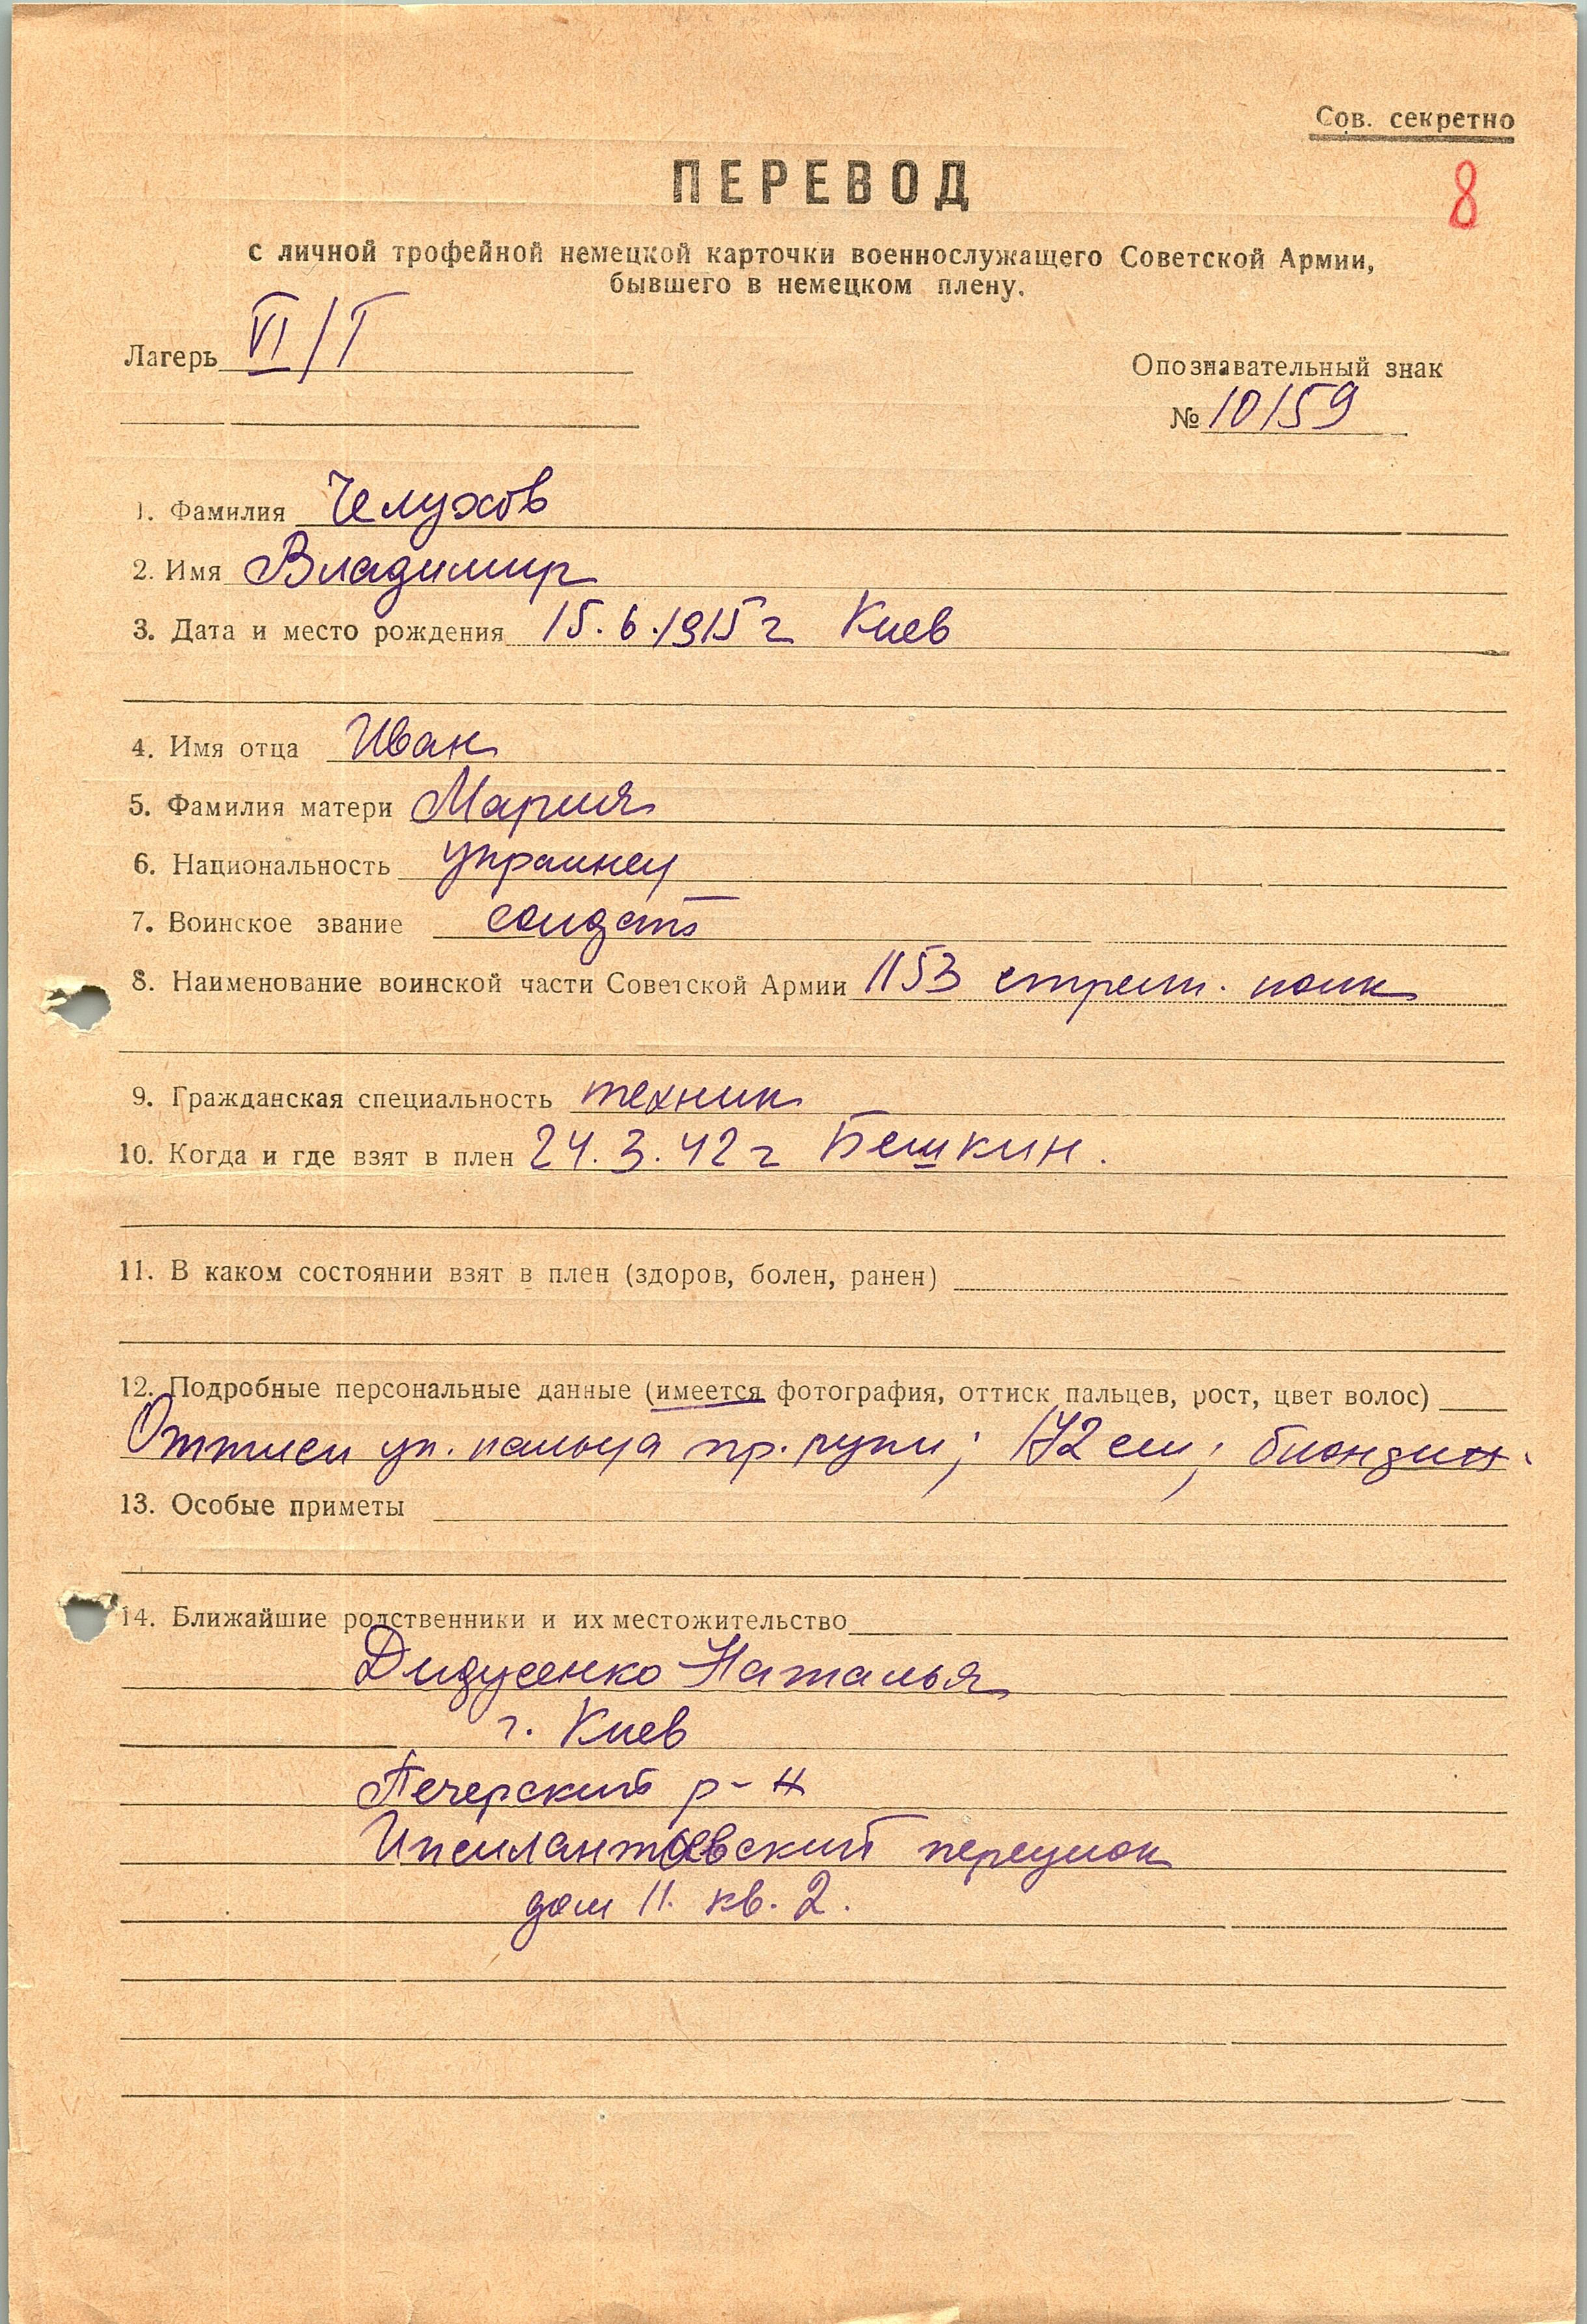 Сов. секретно
8
ПЕРЕВОД
с личной трофейной немецкой карточки военнослужащего Советской Армии,
бывшего в немецком плену.
Лагерь VI/Т
Опознавательный знак
№ 10159
1. Фамилия Челухов
2. Имя Владимир
3. Дата и место рождения 15.6.1915 г Киев
4. Имя отца Иван
5. Фамилия матери Мария
6. Национальность украинец
7. Воинское звание солдат
8. Наименование воинской части Советской Армии 1153 стрелк. полк
9. Гражданская специальность техник
10. Когда и где взят в плен 24.3.42 г Бешкин.
11. В каком состоянии взят в плен (здоров, болен, ранен)
12. Подробные персональные данные (имеется фотография, оттиск пальцев, рост, цвет волос)
Оттиск ук. пальца пр. руки; 172 см; блондин.
13. Особые приметы
14. Ближайшие родственники и их местожительство
Дидусенко Наталья
г. Киев
Печерский р-н
Ипсилантьевский переулок
дом 11. кв. 2.